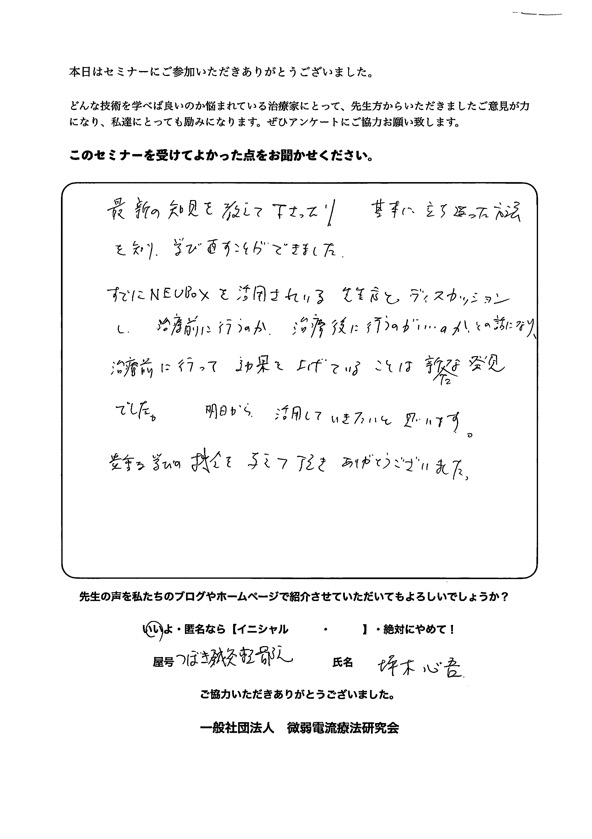 本日はセミナーにご参加いただきありがとうございました。
どんな技術を学べば良いのか悩まれている治療家にとって、先生方からいただきましたご意見が力
になり、私達にとっても励みになります。ぜひアンケートにご協力お願い致します。
このセミナーを受けてよかった点をお聞かせください。
最新の知見を教えて下さったり 基本に立ち返った方法
を知り、学び直すことができました。
すでにNEUBOXを活用されている先生方とディスカッション
し、治療前に行うのか、治療後に行うのがい…のか、との話になり、
治療前に行って効果を上げていることは新たな発見
でした。 明日から 活用していきたいと思います。
貴重な学びの機会を与えて頂き ありがとうございました。
先生の声を私たちのブログやホームページで紹介させていただいてもよろしいでしょうか？
いいよ・匿名なら【イニシャル ・ 】・絶対にやめて！
屋号 つぼき鍼灸整骨院 氏名 坪木 心吾
ご協力いただきありがとうございました。
一般社団法人 微弱電流療法研究会